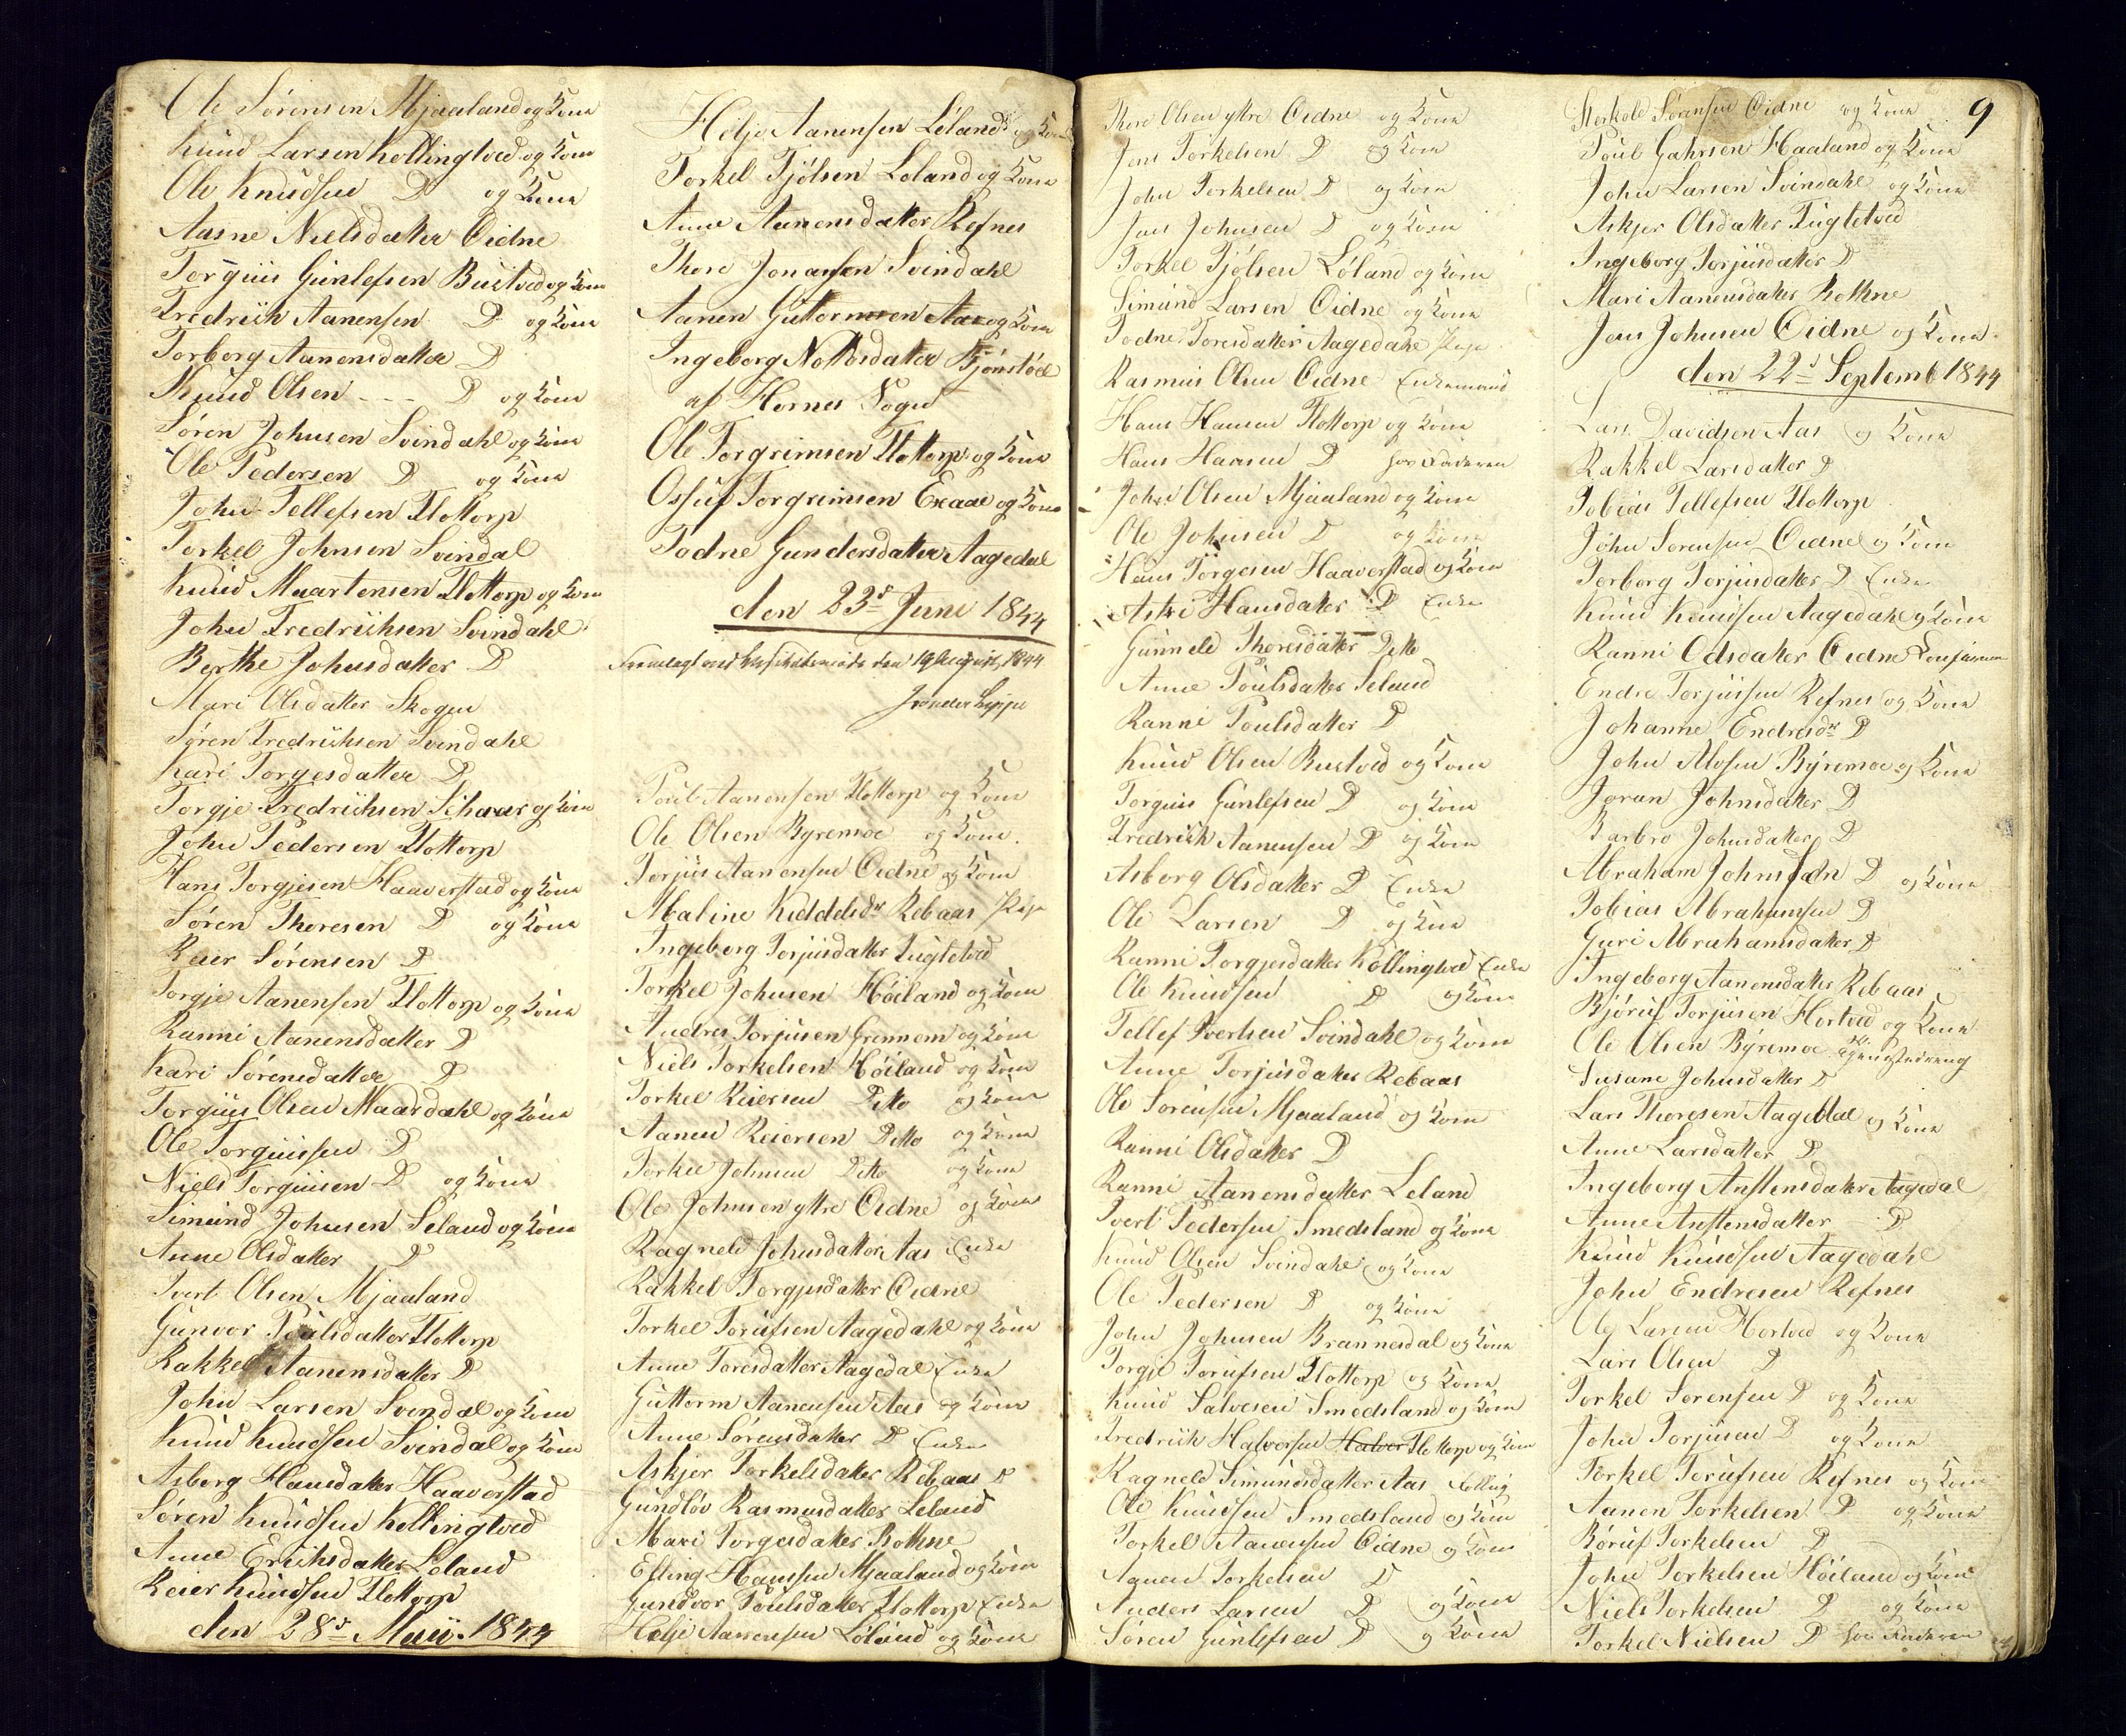 Ole Sørensen Mjaaland og Kone
Knud Larsen Kollingtved og Kone
Ole Knudsen D og Kone
Aasne Nielsdatter Øidne
Torguis Gunlefsen Bustved og Kone
Fredrich Aanensen D og Kone
Torborg Aanensdatter D
Knud Olsen - - - D og Kone
Søren Johnsen Svindahl og Kone
Ole Pedersen D og Kone
John Tellefsen Flottorp
Torkel Johnsen Svindal
Knud Maartensen Flottorp og Kone
John Fredrichsen Svindahl
Berthe Johnsdatter D
Mari Olsdatter Skogen
Søren Fredrichsen Svindahl
Kari Torgesdatter D
Torgje Fredrichsen og Kone
John Pedersen Flottorp
Hans Torgjesen Haaverstad og Kone
Søren Thoresen D og Kone
Reier Sørensen D
Torgje Aanensen Flottorp og Kone
Ranni Aanensdatter D
Kari Sørensdatter D
Torguis Olsen Maardahl og Kone
Ole Torguissen D
Niels Torguisen D og Kone
Simund Johnsen Seland og Kone
Anne Olsdatter D
Ivert Olsen Mjaaland
Gunvor Poulsdatter Flottorp
Rakkel Aanensdatter D
John Larsen Svindal og Kone
Knud Knudsen Svindal og Kone
Asborg Hansdatter Haaverstad
Søren Knudsen Kollingtved
Anne Erichsdatter Leland
Reier Knudsen Flottorp
den 28d Maii. 1844
Helje Aanensen Løland og Kone
Torkel Tjølsen Loland og Kone
Anne Aanensdatter Refnes
Thore Jonassen Svindahl
Aanen Guttormsen Aas og Kone
Ingeborg Nottosdatter Bjønstøel
af Hornes Sogn
Ole Torgrimsen Flottorp og Kone
Ossuf Torgrimsen Exaae og Kone
Todne Gundersdatter Aagedal
den 23d Juni 1844
Fremlagt ved den 19 August 1844
Poul Aanensen Flottorp og Kone
Ole Olsen Byremoe og Kone.
Torjus Aanensen Øidne og Kone
Maline Kiddelsdr Rebaas Pige
Ingeborg Torjusdatter Fugletved
Torkel Johnsen Høiland og Kone
Andres Torjusen Grennem og Kone
Niels Torkelsen Høiland og Kone
Torkel Reiersen Ditto og Kone
Aanen Reiersen Ditto og Kone
Torkel Johnsen Ditto og Kone
Ole Johnsen yttre Øidne og Kone
Ragneld Johnsdatter Aas Enke
Rakkel Torgjesdatter Øidne
Torkel Torufsen Aagedahl og Kone
Anne Toresdatter Aagedal Enke
Guttorm Aanensen Aas og Kone
Anne Sørensdatter D Enke
Askjer Torkelsdatter Rebaas D
Gundløv Rasmusdatter Leland
Mari Torgesdatter Bothne
Efling Hansen Mjaaland og Kone
Gundvor Poulsdatter Flottorp Enke
Helje Aanensen Løland og Kone
Thore Olsen yttre Øidne og Kone
Jens Torkelsen D og Kone
John Torkelsen D og Kone
Jens Johnsen D og Kone
Torkel Tjølsen Løland og Kone
Simund Larsen Øidne og Kone
Todne Toresdatter Aagedahl Pige
Rasmus Olsen Øidne Enkemand
Hans Hansen Flottorp og Kone
Hans Hansen D
John Olsen Mjaaland og Kone
Ole Johnsen D og Kone
Hans Torgesen Haaverstad og Kone
Astri Hansdatter D Enke
Gunneld Thoresdatter Ditto
Anne Poulsdatter Seland
Ranni Poulsdatter D
Knud Olsen Bustved og Kone
Torguis Gunlefsen D og Kone
Fredrich Aanensen D og Kone
Asborg Olsdatter D Enke
Ole Larsen D og Kone
Ranni Torgjesdatter Kollingtved Enke
Ole Knudsen D og Kone
Tellef Ivertsen Svindahl og Kone
Anne Torjusdatter Rebaas
Ole Sørensen Mjaaland og Kone
Ranni Olsdatter D
Ranni Aanensdatter Leland
Ivert Pedersen Smedsland og Kone
Knud Olsen Svindahl og Kone
Ole Pedersen D og Kone
John Johnsen Brannesdal og Kone
Torgje Torufsen Flottorp og Kone
Knud Salvesen Smedsland og Kone
Fredrich Halvorsen Halvor Flottorp og Kone
Ragneld Simundsdatter Aas
Ole Knudsen Smedsland og Kone
Torkel Aanensen Øidne og Kone
Aanen Torkelsen D
Anders Larsen D og Kone
Søren Gunlefsen D og Kone
9
Sterkold Sørensen Øidne og Kone
Poul Gahrsen Haaland og Kone
John Larsen Svindahl og Kone
Askjer Olsdatter Fugletved
Ingeborg Torjusdatter D
Mari Aanensdatter Bothne
Jens Johnsen Øidne og Kone.
den 22d Septemb 1844
Lars Davidsen Aas og Kone
Rakkel Larsdatter D
Tobias Tellefsen Flottorp
John Sørensen Øidne og Kone
Torborg Torjusdatter D Enke
Knud Knudsen Aagedahl og Kone
Ranni Odsdatter Øidne
Endre Torjussen Refnes og Kone
Johanne Endresdr D
John Alofsen Byremoe og Kone
Joran Johnsdatter D
Barbro Johnsdatter D
Abraham Johnsen D og Kone
Tobias Abrahamsen D
Guri Abrahamsdatter D
Ingeborg Aanensdatter Rebaas
Bjøruf Torjusen Hortved og Kone
Ole Olsen Byremoe
Susane Johnsdatter D
Lars Thoresen Aagedal og Kone
Anne Larsdatter D
Ingeborg Anstensdatter Aagedal
Anne Anstensdatter D
Knud Knudsen Aagedahl
John Endresen Refnes
Ole Larsen Hortved og Kone
Lars Olsen D
Torkel Sørensen D og Kone
John Torjusen D og Kone
Torkel Torufsen Refnes og Kone
Aanen Torkelsen D og Kone
Røruf Torkelsen D
John Torkelsen Høiland og Kone
Niels Torkelsen D og Kone
Torkel Nielsen D